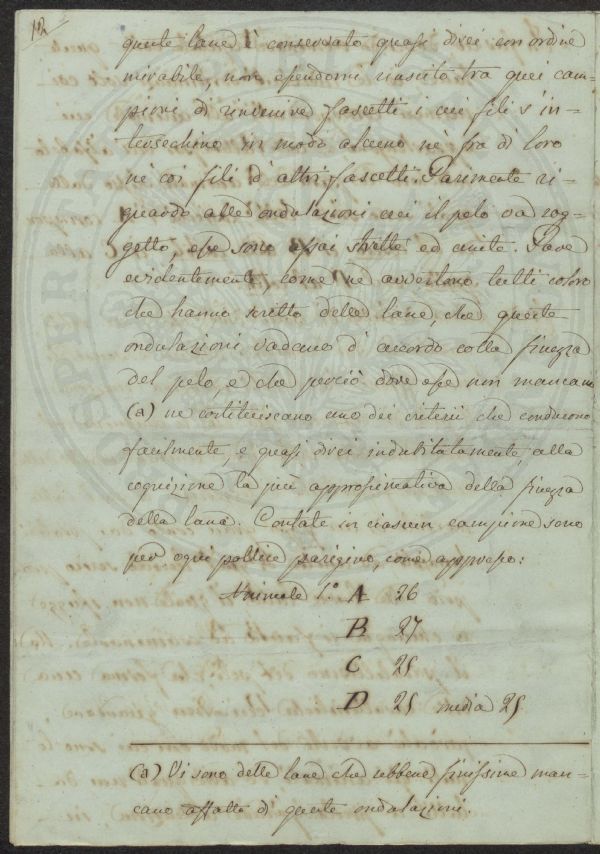 12
queste lane è conservato quasi direi con ordine
mirabile, non essendomi riuscito tra quei cam=
pioni di rinvenire fascetti i cui fili s'in=
tersechino in modo alcuno nè fra di loro
nè coi fili d'altri fascetti. Parimente ri=
guardo alle ondulazioni cui il pelo va sog=
getto, esse sono assai strette ed unite. Pare
evidentemente, come ne avvertono tutti coloro
che hanno scritto delle lane, che queste
ondulazioni vadano d'accordo colla finezza
del pelo, e che perciò dove esse non mancano
(a) ne costituiscano uno dei criterii che conducono
facilmente, e quasi direi indubitatamente, alla
cognizione la più approssimativa della finezza
della lana. Contate in ciascun campione sono
per ogni pollice parigino, come appresso:
Animale 1.° A 26
B 27
C 25
D 25 media 25
(a) Vi sono delle lane che sebbene finissime man=
cano affatto di queste ondulazioni.